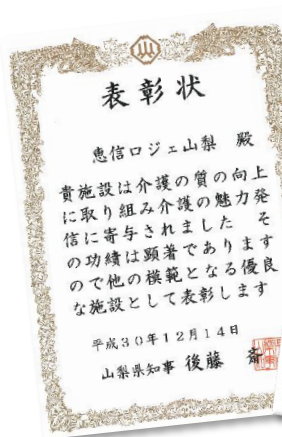 表彰状
恵信ロジェ山梨 殿
貴施設は介護の質の向上
に取り組み介護の魅力発
信に寄与されました そ
の功績は顕著であります
ので他の模範となる優良
な施設として表彰します
平成30年12月14日
山梨県知事 後藤 斎